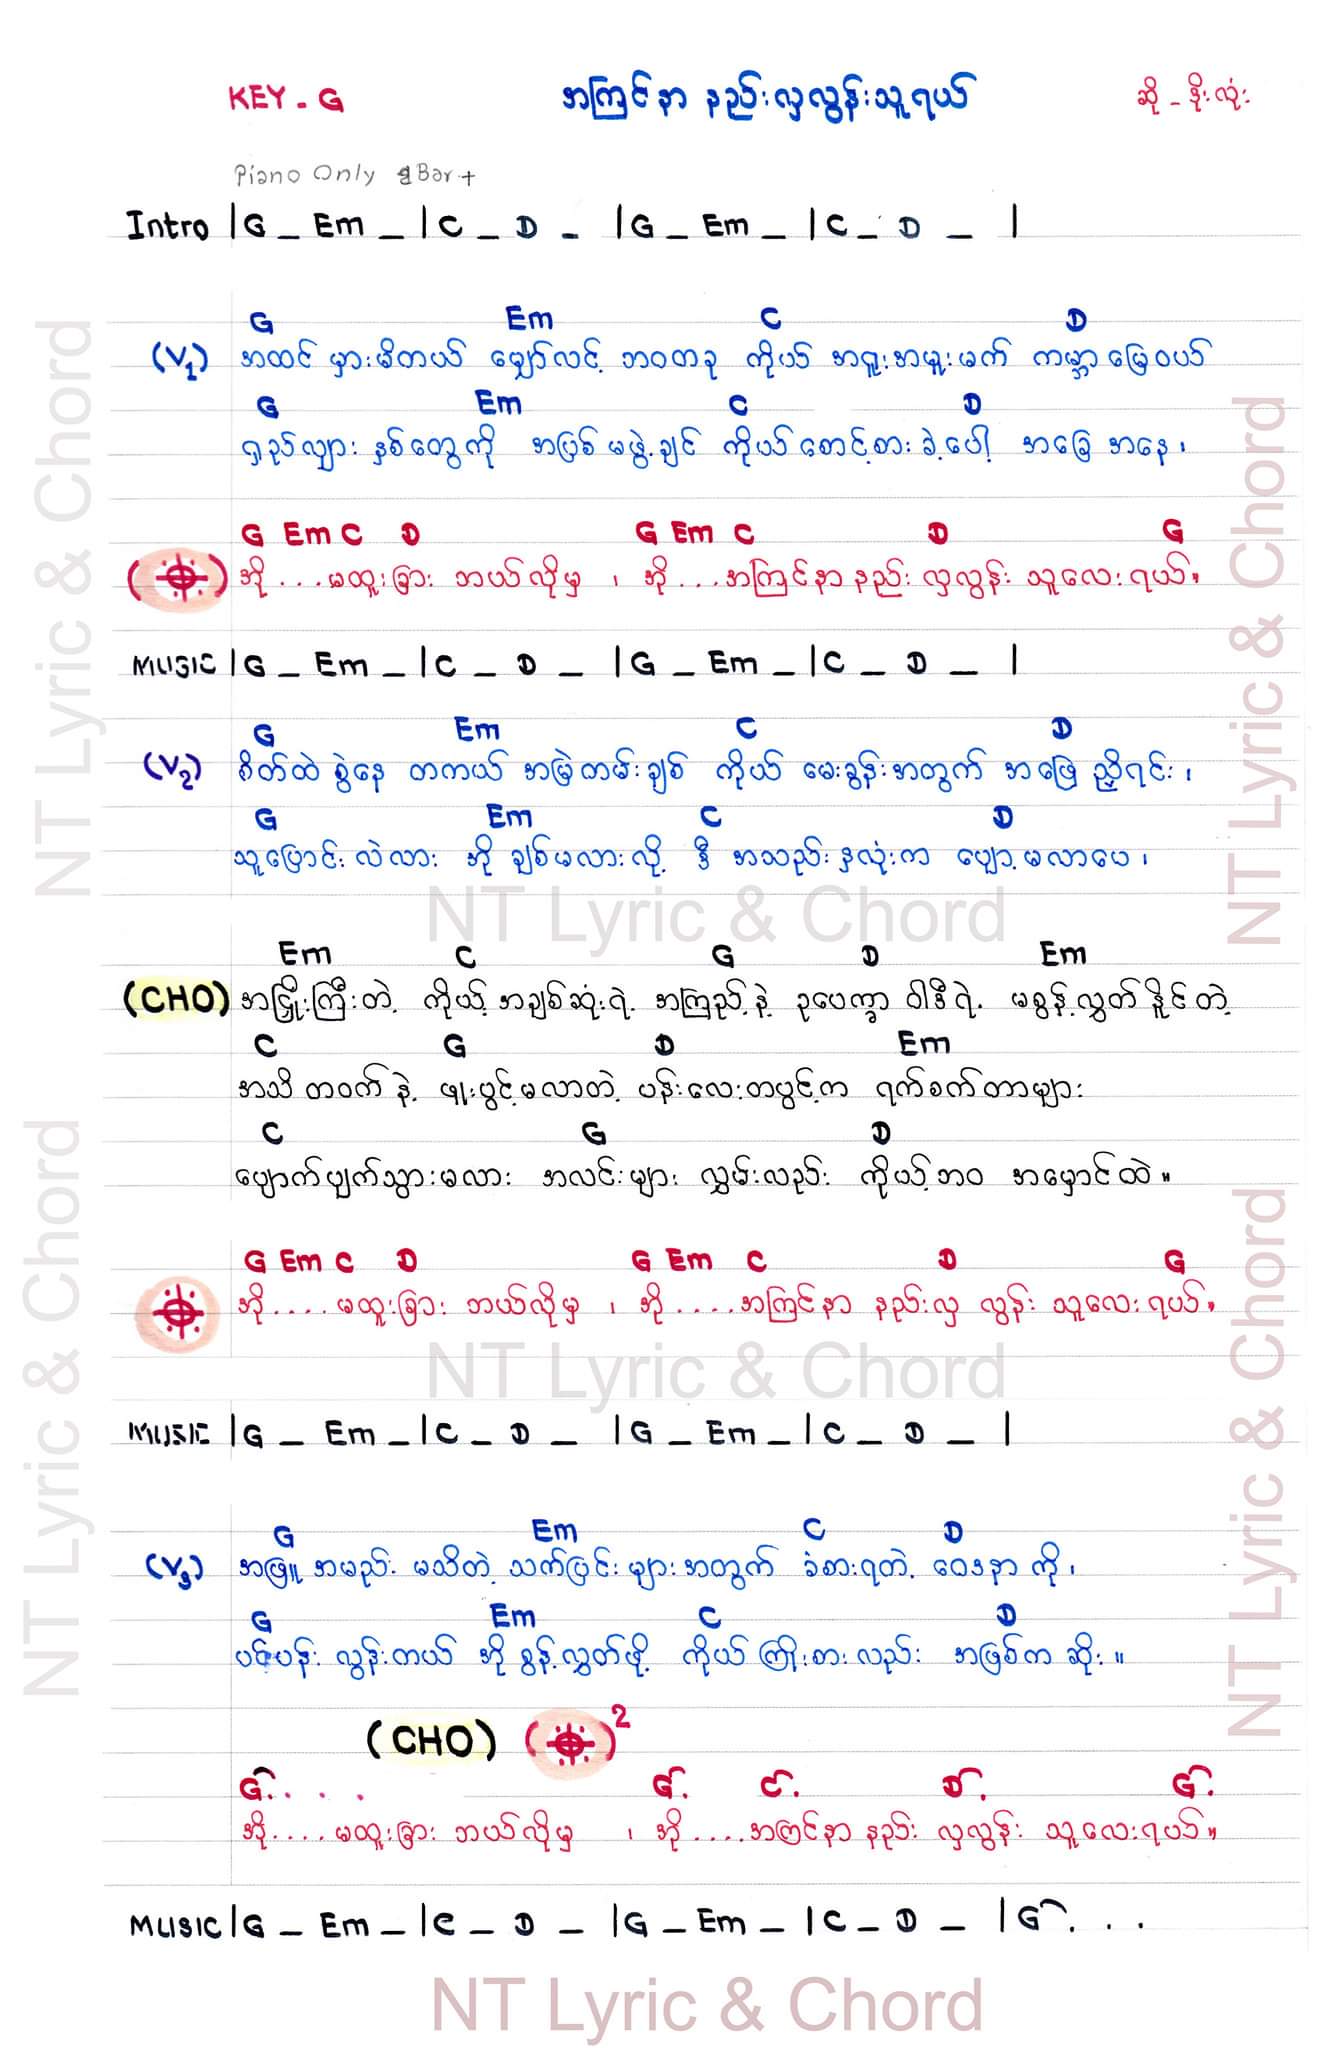 KEY - G အကြင်နာ နည်းလှလွန်းသူရယ် ဆို - ဒိုးလုံး
Piano Only Bar +
Intro |G _ Em _ |C _ D _ |G _ Em _ |C _ D _ |
G Em C D
(V1) အထင် မှားမိတယ် မျှော်လင့် ဘဝတခု ကိုယ် အရူးအမူးမက် ကမ္ဘာမြေဝယ်
G Em C D
ရှည်လျား နှစ်တွေကို အဖြစ် မဖွဲ့ချင် ကိုယ်စောင့်စားခဲ့ပေါ့ အခြေ အနေ ၊
G Em C D G Em C D G
( ) အို ....မထူးခြား ဘယ်လိုမှ ၊ အို ...အကြင်နာ နည်း လှလွန်း သူလေးရယ်။
MUSIC |G _ Em _ |C _ D _ |G _ Em _ |C _ D _ |
G Em C D
(V2) စိတ်ထဲ စွဲနေ တကယ် အမြဲတမ်းချစ် ကိုယ် မေးခွန်းအတွက် အဖြေ ညှိရင်း ၊
G Em C D
သူပြောင်း လဲလား အို ချစ်မလားလို့ ဒီ အသည်းနှလုံးက ပျော့မလာပေ ၊
Em C G D Em
(CHO) အငြှိုးကြီးတဲ့ ကိုယ့် အချစ်ဆုံးရဲ့ အကြည့်နဲ့ ဥပေက္ခာ ဝါဒီရဲ့ မစွန့်လွှတ်နိူင်တဲ့
C G D Em
အသိတဝက်နဲ့ ဖူးပွင့်မလာတဲ့ ပန်းလေးတပွင့်က ရက်စက်တာများ
C G D
ပျောက်ပျက်သွားမလား အလင်းများ လွှမ်းလည်း ကိုယ့်ဘဝ အမှောင်ထဲ။
G Em C D G Em C D G
အို ....မထူးခြား ဘယ်လိုမှ ၊ အို ....အကြင်နာ နည်းလှ လွန်း သူလေးရယ်။
MUSIC |G _ Em _ |C _ D _ |G _ Em _ |C _ D _ |
G Em C D
(V3) အဖြူ အမည်း မသိတဲ့ သက်ပြင်းများအတွက် ခံစားရတဲ့ ဝေဒနာ ကို ၊
G Em C D
ပင်ပန်း လွန်းတယ် အို စွန့်လွှတ်ဖို့ ကိုယ်ကြိုးစားလည်း အဖြစ်က ဆိုး ။
(CHO) ( )2
G. . . . G. C. D. G.
အို ....မထူးခြား ဘယ်လိုမှ ၊ အို ....အကြင်နာ နည်း လှလွန်း သူလေးရယ်။
MUSIC |G _ Em _ |C _ D _ |G _ Em _ |C _ D _ |G. . .
NT Lyric & Chord
NT Lyric & Chord
NT Lyric & Chord
NT Lyric & Chord
NT Lyric & Chord
NT Lyric & Chord
NT Lyric & Chord